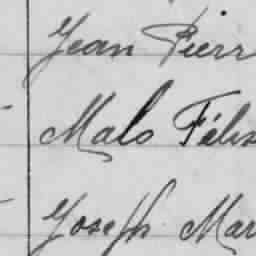 Jean Pierr
Malo Félix
Joseph Mar